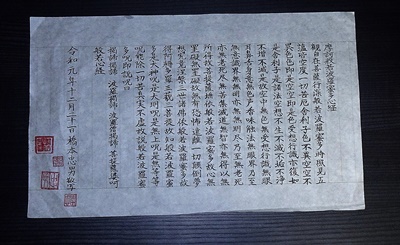 摩訶般若波羅蜜多心経
観自在菩薩行深般若波羅蜜多時照見五
蘊皆空度一切苦厄舎利子色不異空空不
異色色即是空空即是色受想行識亦復如
是舎利子是諸法空相不生不滅不垢不浄
不増不減是故空中無色無受想行識無眼
耳鼻舌身意無色声香味触法無眼界乃至
無意識界無無明亦無無明尽乃至無老死
亦無老死尽無苦集滅道無智亦無得以無
所得故菩提薩埵依般若波羅蜜多故心無
罣礙無罣礙故無有恐怖遠離一切顛倒夢
想究竟涅槃三世諸仏依般若波羅蜜多故
得阿耨多羅三藐三菩提故知般若波羅蜜
多是大神呪是大明呪是無上呪是無等等
呪能除一切苦真実不虚故説般若波羅蜜
多呪即説呪曰
羯諦羯諦 波羅羯諦 波羅僧羯諦 菩提薩婆訶
般若心経
令和元年十二月二十日 敬写